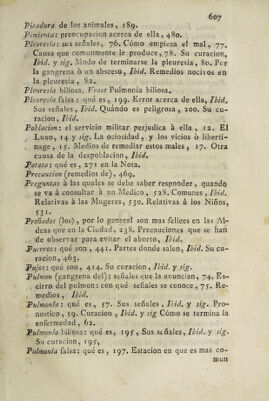 607
Picadura de los animales, 189.
Pimienta: preocupacion acerca de ella, 480.
Pleuresía: sus señales, 76. Cómo empieza el mal, 77.
Causa que comunmente le produce, 78. Su curacion,
Ibid. y sig. Modo de terminarse la pleuresía, 80. Por
la gangrena ò un absceso, Ibid. Remedios nocivos en
la pleuresía, 82.
Pleuresía biliosa. Vease Pulmonía biliosa.
Pleuresía falsa: qué es, 199. Error acerca de ella, Ibid.
Sus señales, Ibid. Quándo es peligrosa, 200. Su cu-
racion, Ibid.
Poblacion: el servicio militar perjudica à ella, 12. El
Luxo, 14 y sig. La ociosidad, y los vicios ò liberti-
nage, 15. Medios de remediar estos males, 17. Otra
causa de la despoblacion, Ibid.
Potasa: qué es, 271 en la Nota.
Precaucion (remedios de), 469.
Preguntas à las quales se debe saber responder, quando
se va à consultar à un Medico, 528. Comunes, Ibid.
Relativas à las Mugeres, 530. Relativas à los Niños,
531.
Preñados (los), por lo general son mas felices en las Al-
deas que en la Ciudad, 238. Precauciones que se han
de observar para evitar el aborto, Ibid.
Puerros: qué son, 441. Partes donde salen, Ibid. Su cu-
racion, 463.
Pujos: qué son, 414. Su curacion, Ibid. y sig.
Pulmon (gangrena del): señales que la anuncian, 74. Es-
cirro del pulmon: con qué señales se conoce, 75. Re-
medios, Ibid.
Pulmonía: qué es, 57. Sus señales, Ibid. y sig. Pro-
nostico, 59. Curacion, Ibid. y sig Cómo se termina la
enfermedad, 62.
Pulmonía biliosa: qué es, 195, Sus señales, Ibid. y sig.
Su curacion, 195,
Pulmonía falsa: qué es, 197. Estacion en que es mas co-
mun